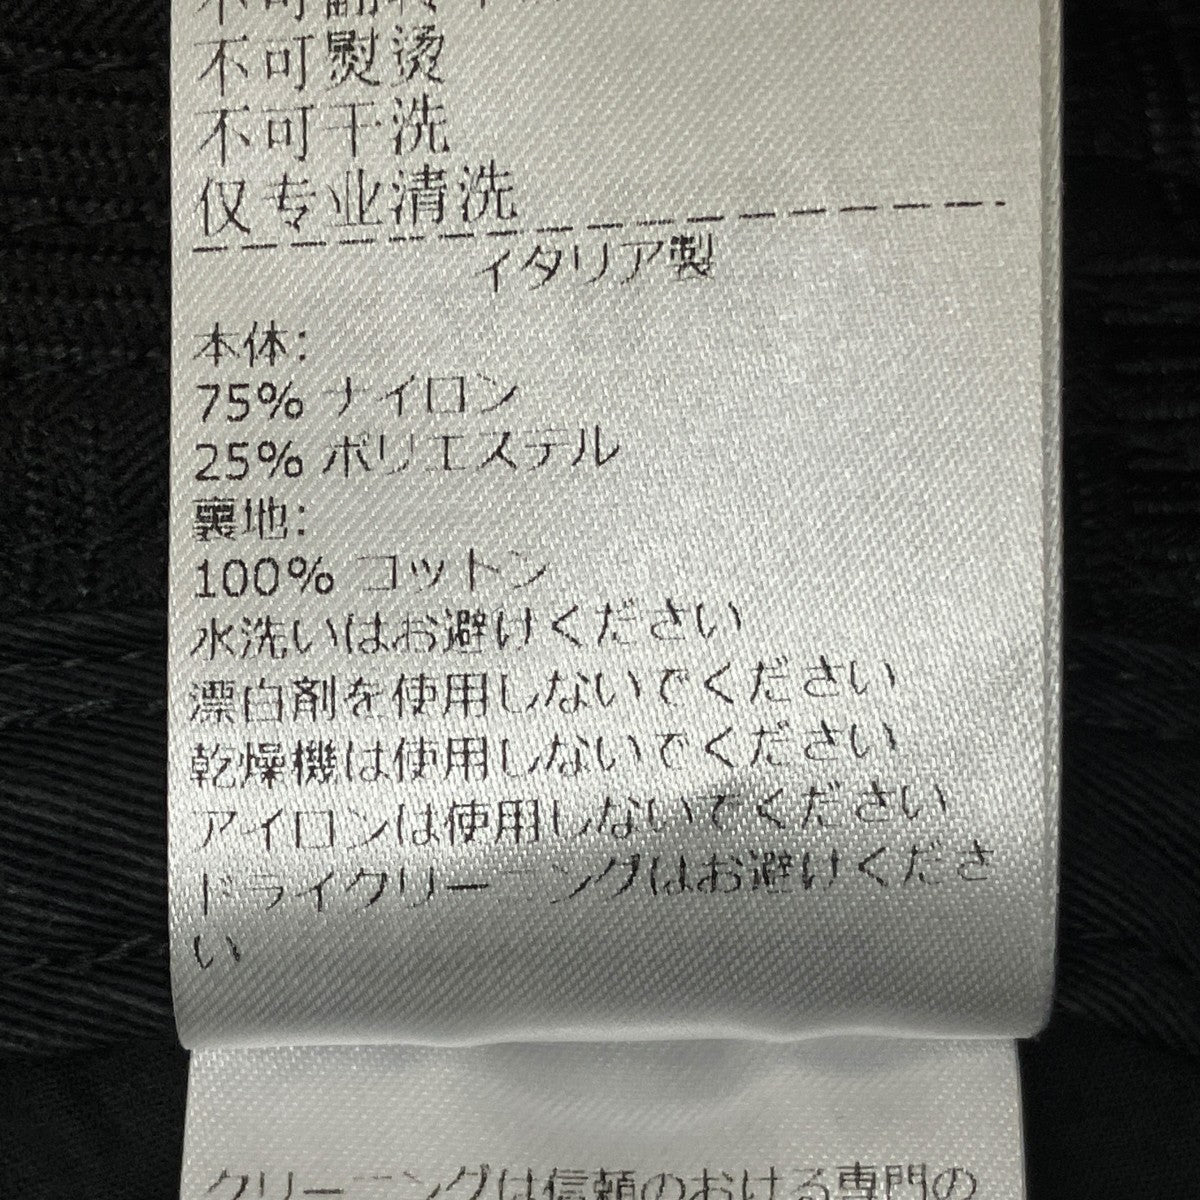 不可翻转干
不可熨烫
不可干洗
仅专业清洗
イタリア製
本体:
75% ナイロン
25% ポリエステル
裏地:
100% コットン
水洗いはお避けください
漂白剤を使用しないでください
乾燥機は使用しないでください
アイロンは使用しないでください
ドライクリーニングはお避けくださ
い
クリーニングは信頼のおける専門の